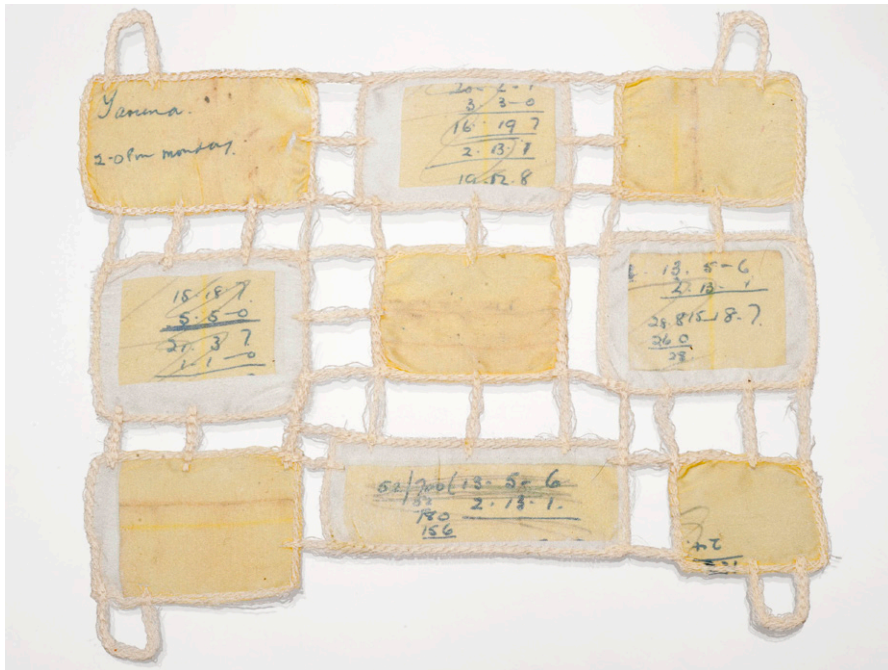 2-0 Pm monday.
3. 3-0
16. 19 7
2. 13. 1
19. 12. 8
18. 18. 7.
5. 5-0
21. 3 7
1. 1-0
13. 5-6
2. 13. 1
28.8 15-18-7.
26 0
28
52/700(13-5-6
52
180
156
2. 13. 1.